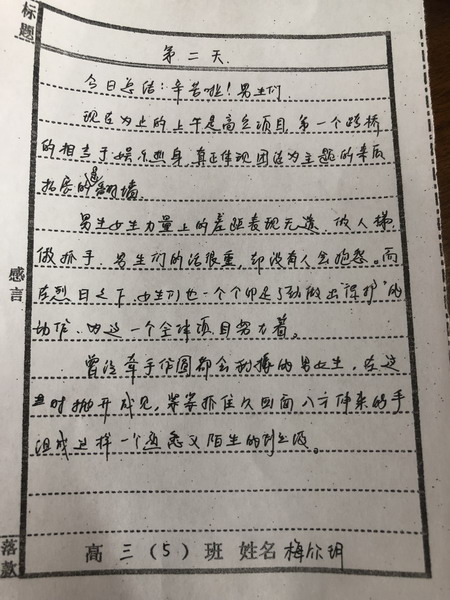 标题
第二天
今日总结：辛苦啦！男生们
现已为止的上午是高空项目，第一个跨桥
的相当于娱乐热身，真正体现团结为主题的来底
拓展的是翻墙。
男生女生力量上的差距表现无遗，做人梯
做抓手，男生们的活很重，却没有人会抱怨。而
在烈日之下，女生们也一个个卯足了劲做出“保护”的
动作，为这一个全体项目努力着。
曾经牵手作圆都会的男女生，在这
时抛开成见，紧紧抓住从四面八方伸来的手
组成这样一个熟悉又陌生的
感言
落款
高三（5）班 姓名 梅尔玥